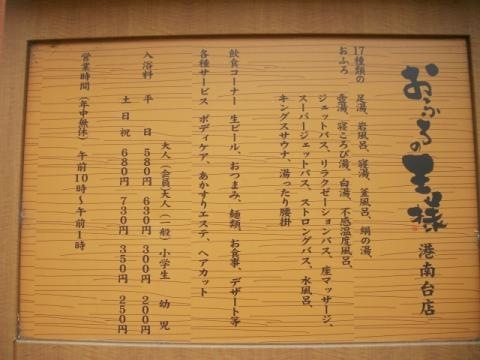 おふろの王様 港南台店
17種類のおふろ
足湯、岩風呂、寝湯、釜風呂、絹の湯、
壺湯、寝ころび湯、白湯、不感温度風呂、
ジェットバス、リラクゼーションバス、座マッサージ、
スーパージェットバス、ストロングバス、水風呂、
キングスサウナ、湯ったり腰掛
飲食コーナー 生ビール、おつまみ、麺類、お食事、デザート等
各種サービス ボディケア、あかすりエステ、ヘアカット
大人(会員) 大人(一般) 小学生 幼児
入浴料 平日 580円 630円 300円 200円
土日祝 680円 730円 350円 250円
営業時間(年中無休) 午前10時〜午前1時